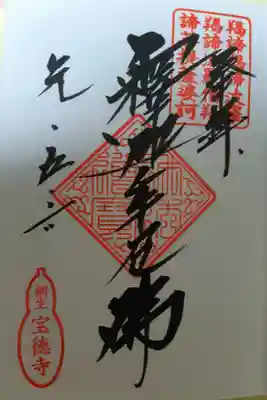 羯諦羯諦波羅
羯諦波羅僧羯
諦菩提薩婆訶
奉拝
釋迦牟尼佛
元・五・
桐生
宝徳寺